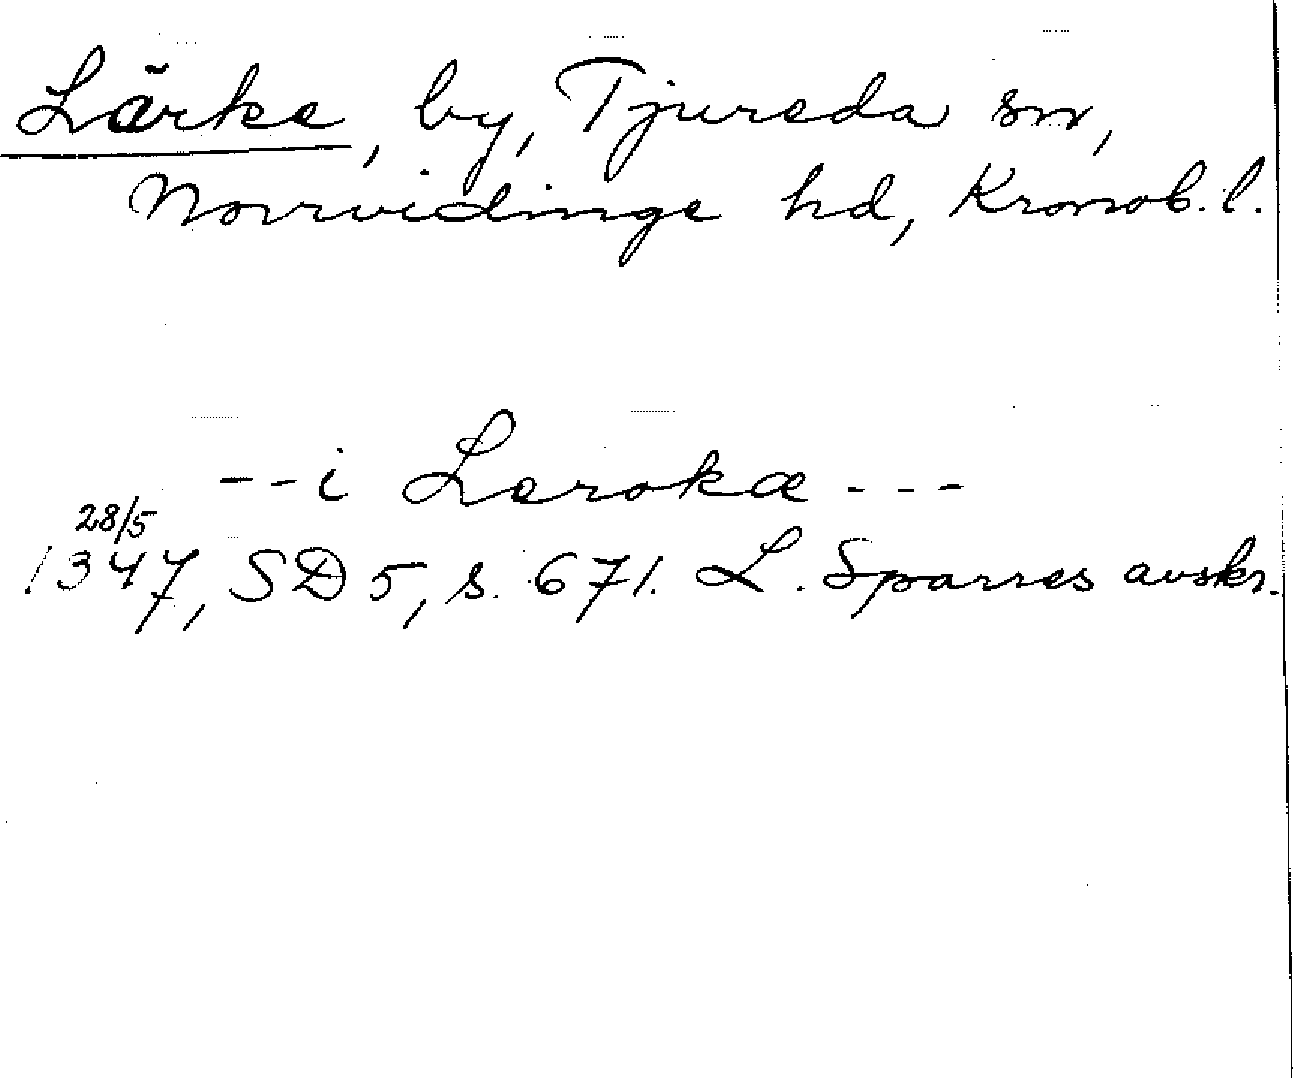 Lärke, by, Tjureda sn,
Norrvidinge hd, Kronob. l.
- - i Lerokæ - - -
28/5
1347, SD 5, s. 671. L. Sparres avskr.